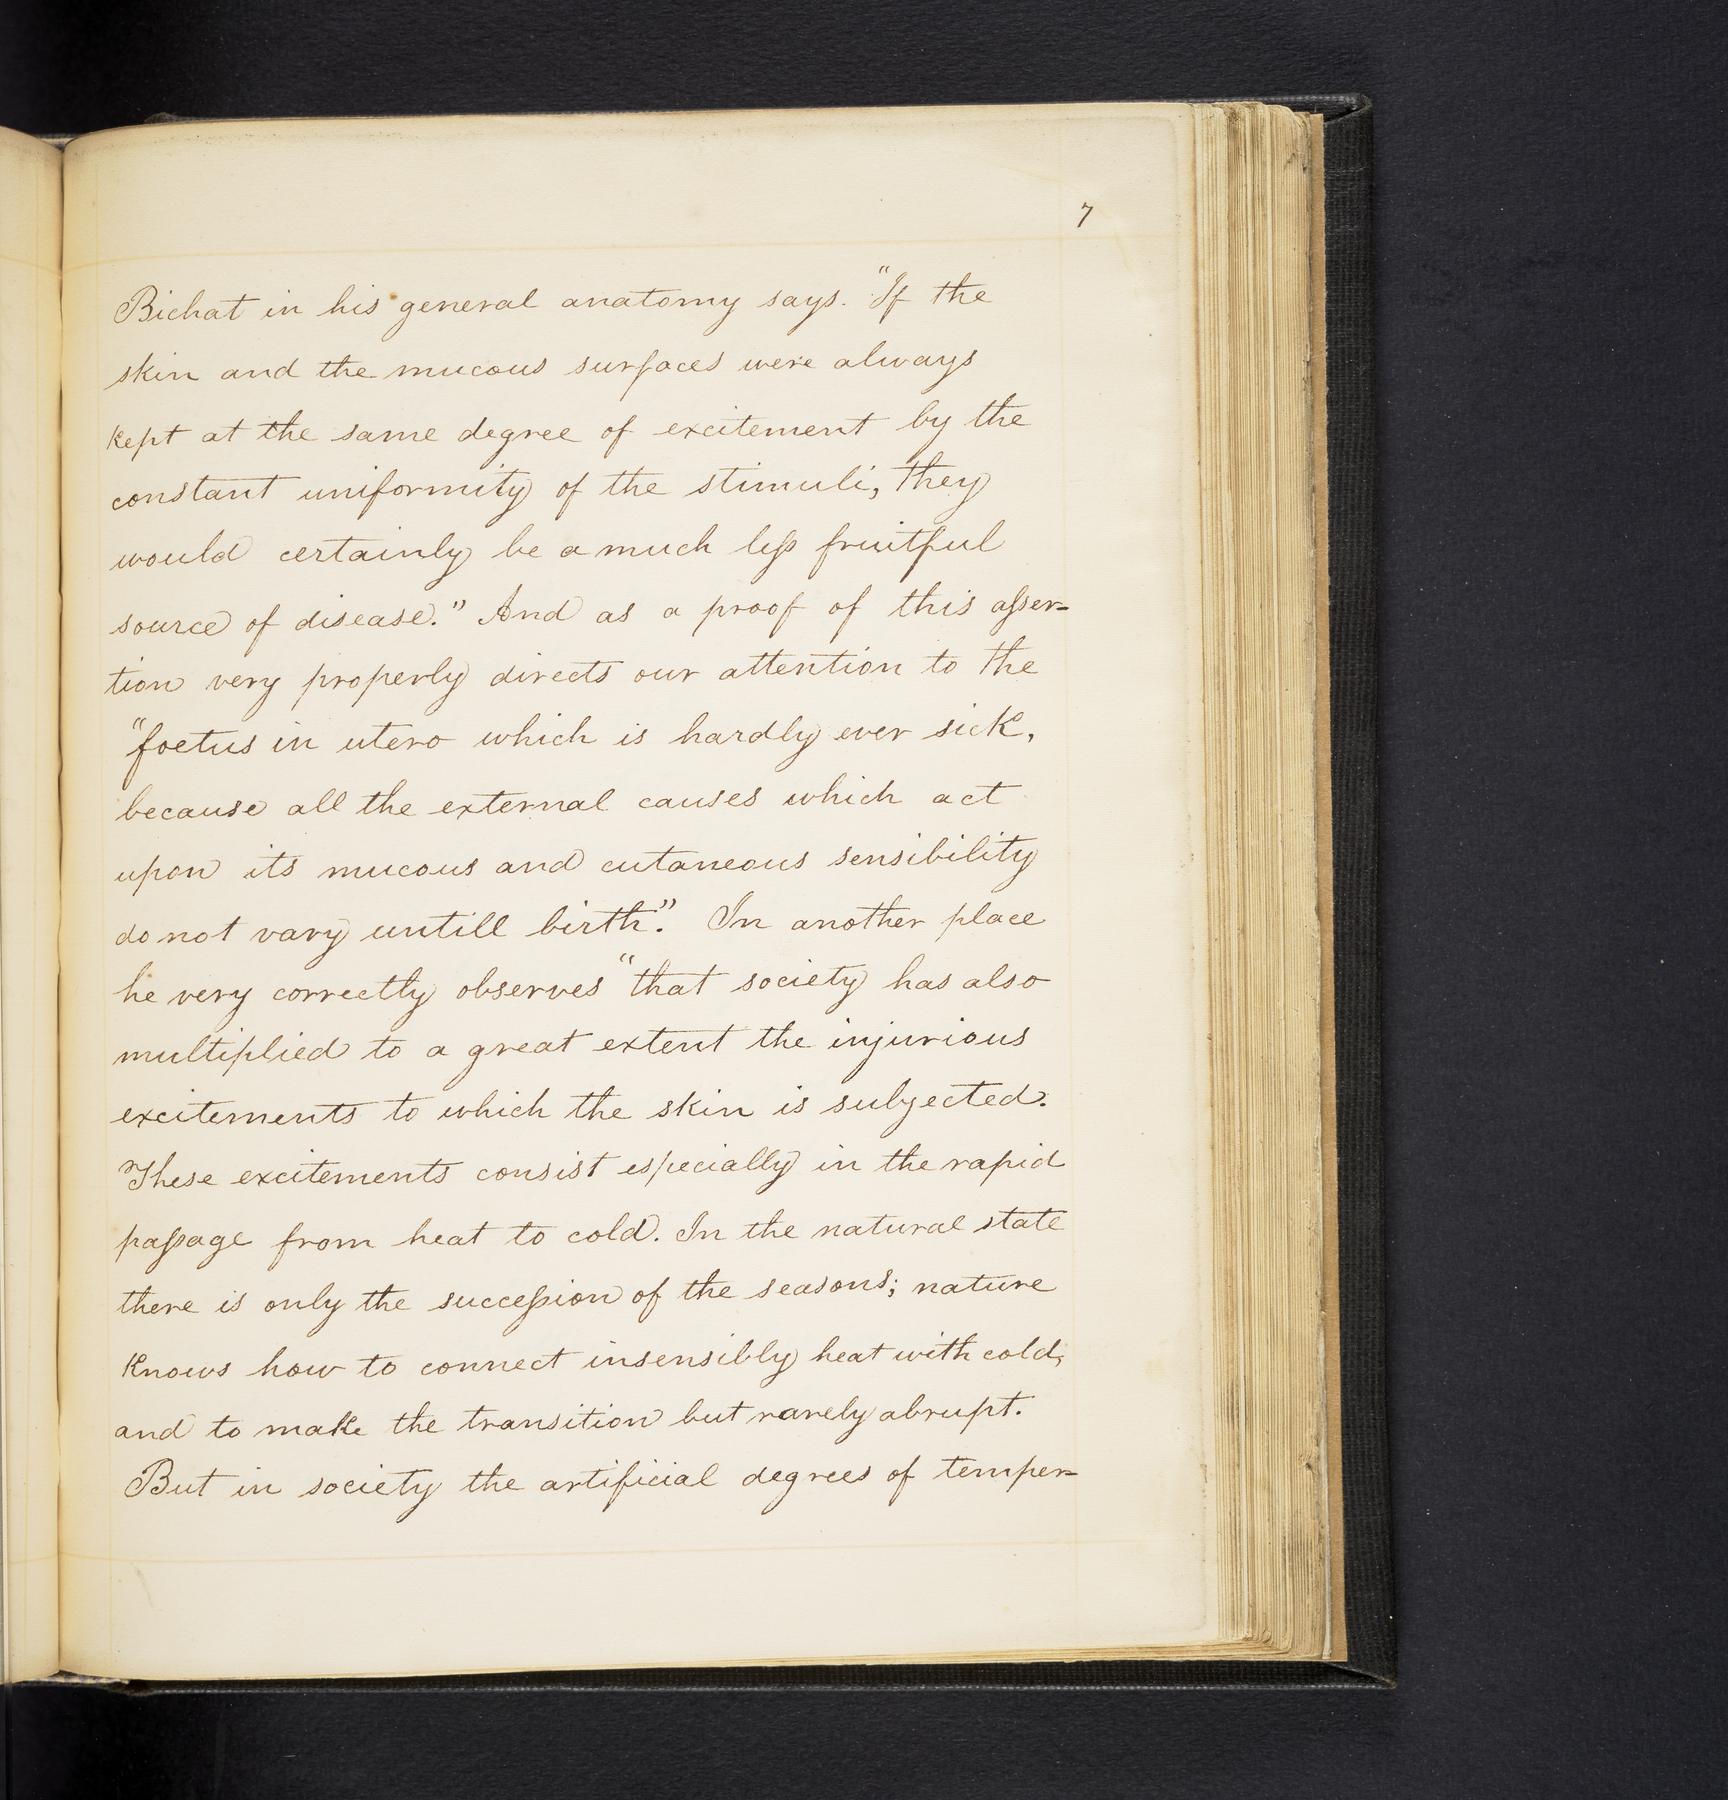 7
Bichat in his general anatomy says. "If the
skin and the mucous surfaces were always
kept at the same degree of excitement by the
constant uniformity of the stimuli, they
would certainly be a much less fruitful
source of disease." And as a proof of this asser-
tion very properly directs our attention to the
"foetus in utero which is hardly ever sick,
because all the external causes which act
upon its mucous and cutaneous sensibility
do not vary untill birth." In another place
he very correctly observes "that society has also
multiplied to a great extent the injurious
excitements to which the skin is subjected.
These excitements consist especially in the rapid
passage from heat to cold. In the natural state
there is only the succession of the seasons; nature
knows how to connect insensibly heat with cold,
and to make the transition but rarely abrupt.
But in society the artificial degrees of temper-